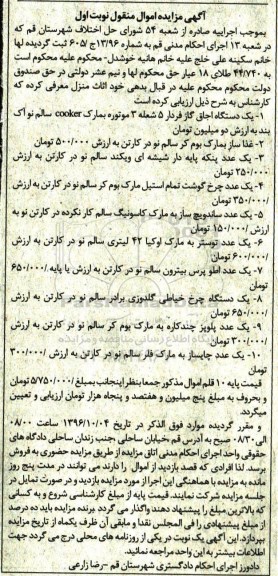 آگهی مزایده اموال منقول نوبت اول
بموجب اجراییه صادره از شعبه ۵۴ شورای حل اختلاف شهرستان قم که
در شعبه ۱۳ اجرای احکام مدنی قم به شماره ۱۳/۹۶ج/۶۰۵ ثبت گردیده لها
خانم سکینه علی خلج علیه خانم هانیه خوشدل- محکوم علیه محکوم است
به ۴۴/۷۴۰ طلای ۱۸ عیار حق محکوم لها و نیم عشر دولتی در حق صندوق
دولت محکوم محکوم علیه در قبال بدهی خود اثاث منزل معرفی کرده که
کارشناس به شرح ذیل ارزیابی کرده است
۱- یک دستگاه اجاق گاز فردار ۵ شعله ۳ موتوره بمارک cooker سالم نو آک
بند به ارزش دو میلیون تومان
۲- غذا ساز بمارک بوم کر سالم نو در کارتن به ارزش ۵۰۰/۰۰۰ تومان
۳- یک عدد پنکه پایه دار شیشه ای ویکند سالم نو در کارتن به ارزش
۲۵۰/۰۰۰ تومان
۴- یک عدد چرخ گوشت تمام استیل مارک بوم کر سالم نو در کارتن به ارزش
۳۵۰/۰۰۰ تومان
۵- یک عدد ساندویچ ساز به مارک کاسونیگ سالم کار نکرده در کارتن نو به
ارزش ۱۵۰/۰۰۰ تومان
۶- یک عدد توستر به مارک اوکیا ۴۲ لیتری سالم نو در کارتن به ارزش
۶۰۰/۰۰۰ تومان
۷- یک عدد اطو پرس بیترون سالم نو در کارتن به ارزش با پایه ۶۵۰/۰۰۰
تومان
۸- یک دستگاه چرخ خیاطی گلدوزی برادر سالم نو در کارتن به ارزش
۶۵۰/۰۰۰ تومان
۹- یک عدد پلوپز چندکاره به مارک بوم کر سالم نو در کارتن به ارزش
۳۰۰/۰۰۰ تومان
۱۰- یک عدد چایساز به مارک فلر سالم نو در کارتن به ارزش ۳۰۰/۰۰۰
تومان
قیمت پایه ۱۰ قلم اموال مذکور جمعا بنظر اینجانب بمبلغ ۵/۷۵۰/۰۰۰ تومان
و بحروف به مبلغ پنج میلیون و هفتصد و پنجاه هزار تومان ارزیابی و تعیین
میگردد.
و مقرر گردیده موارد فوق الذکر در تاریخ ۱۳۹۶/۱۰/۰۴ ساعت ۰۸/۰۰
الی ۰۸/۳۰ صبح به آدرس قم -خیابان ساحلی جنب زندان ساحلی دادگاه های
حقوقی واحد اجرای احکام مدنی اتاق مزایده از طریق مزایده حضوری به فروش
برسد. لذا افرادی که قصد بازدید از اموال را دارند می توانند در مدت پنج روز
مانده به مزایده با هماهنگی این اجرا از مورد مزایده بازدید و در صورت تمایل در
جلسه مزایده شرکت نمایند. قیمت پایه از مبلغ کارشناسی شروع و به کسانی
که بالاترین مبلغ را پیشنهاد دهند واگذار می گردد. برنده مزایده باید ده درصد
از مبلغ پیشنهادی را فی المجلس نقدا و مابقی آن ظرف یکماه از تاریخ مزایده
بپردازد. این آگهی یک نوبت در یکی از روزنامه های محلی درج می گردد جهت
اطلاعات بیشتر به این واحد مراجعه نمائید.
دادورز اجرای احکام دادگستری شهرستان قم -رضا زارعی